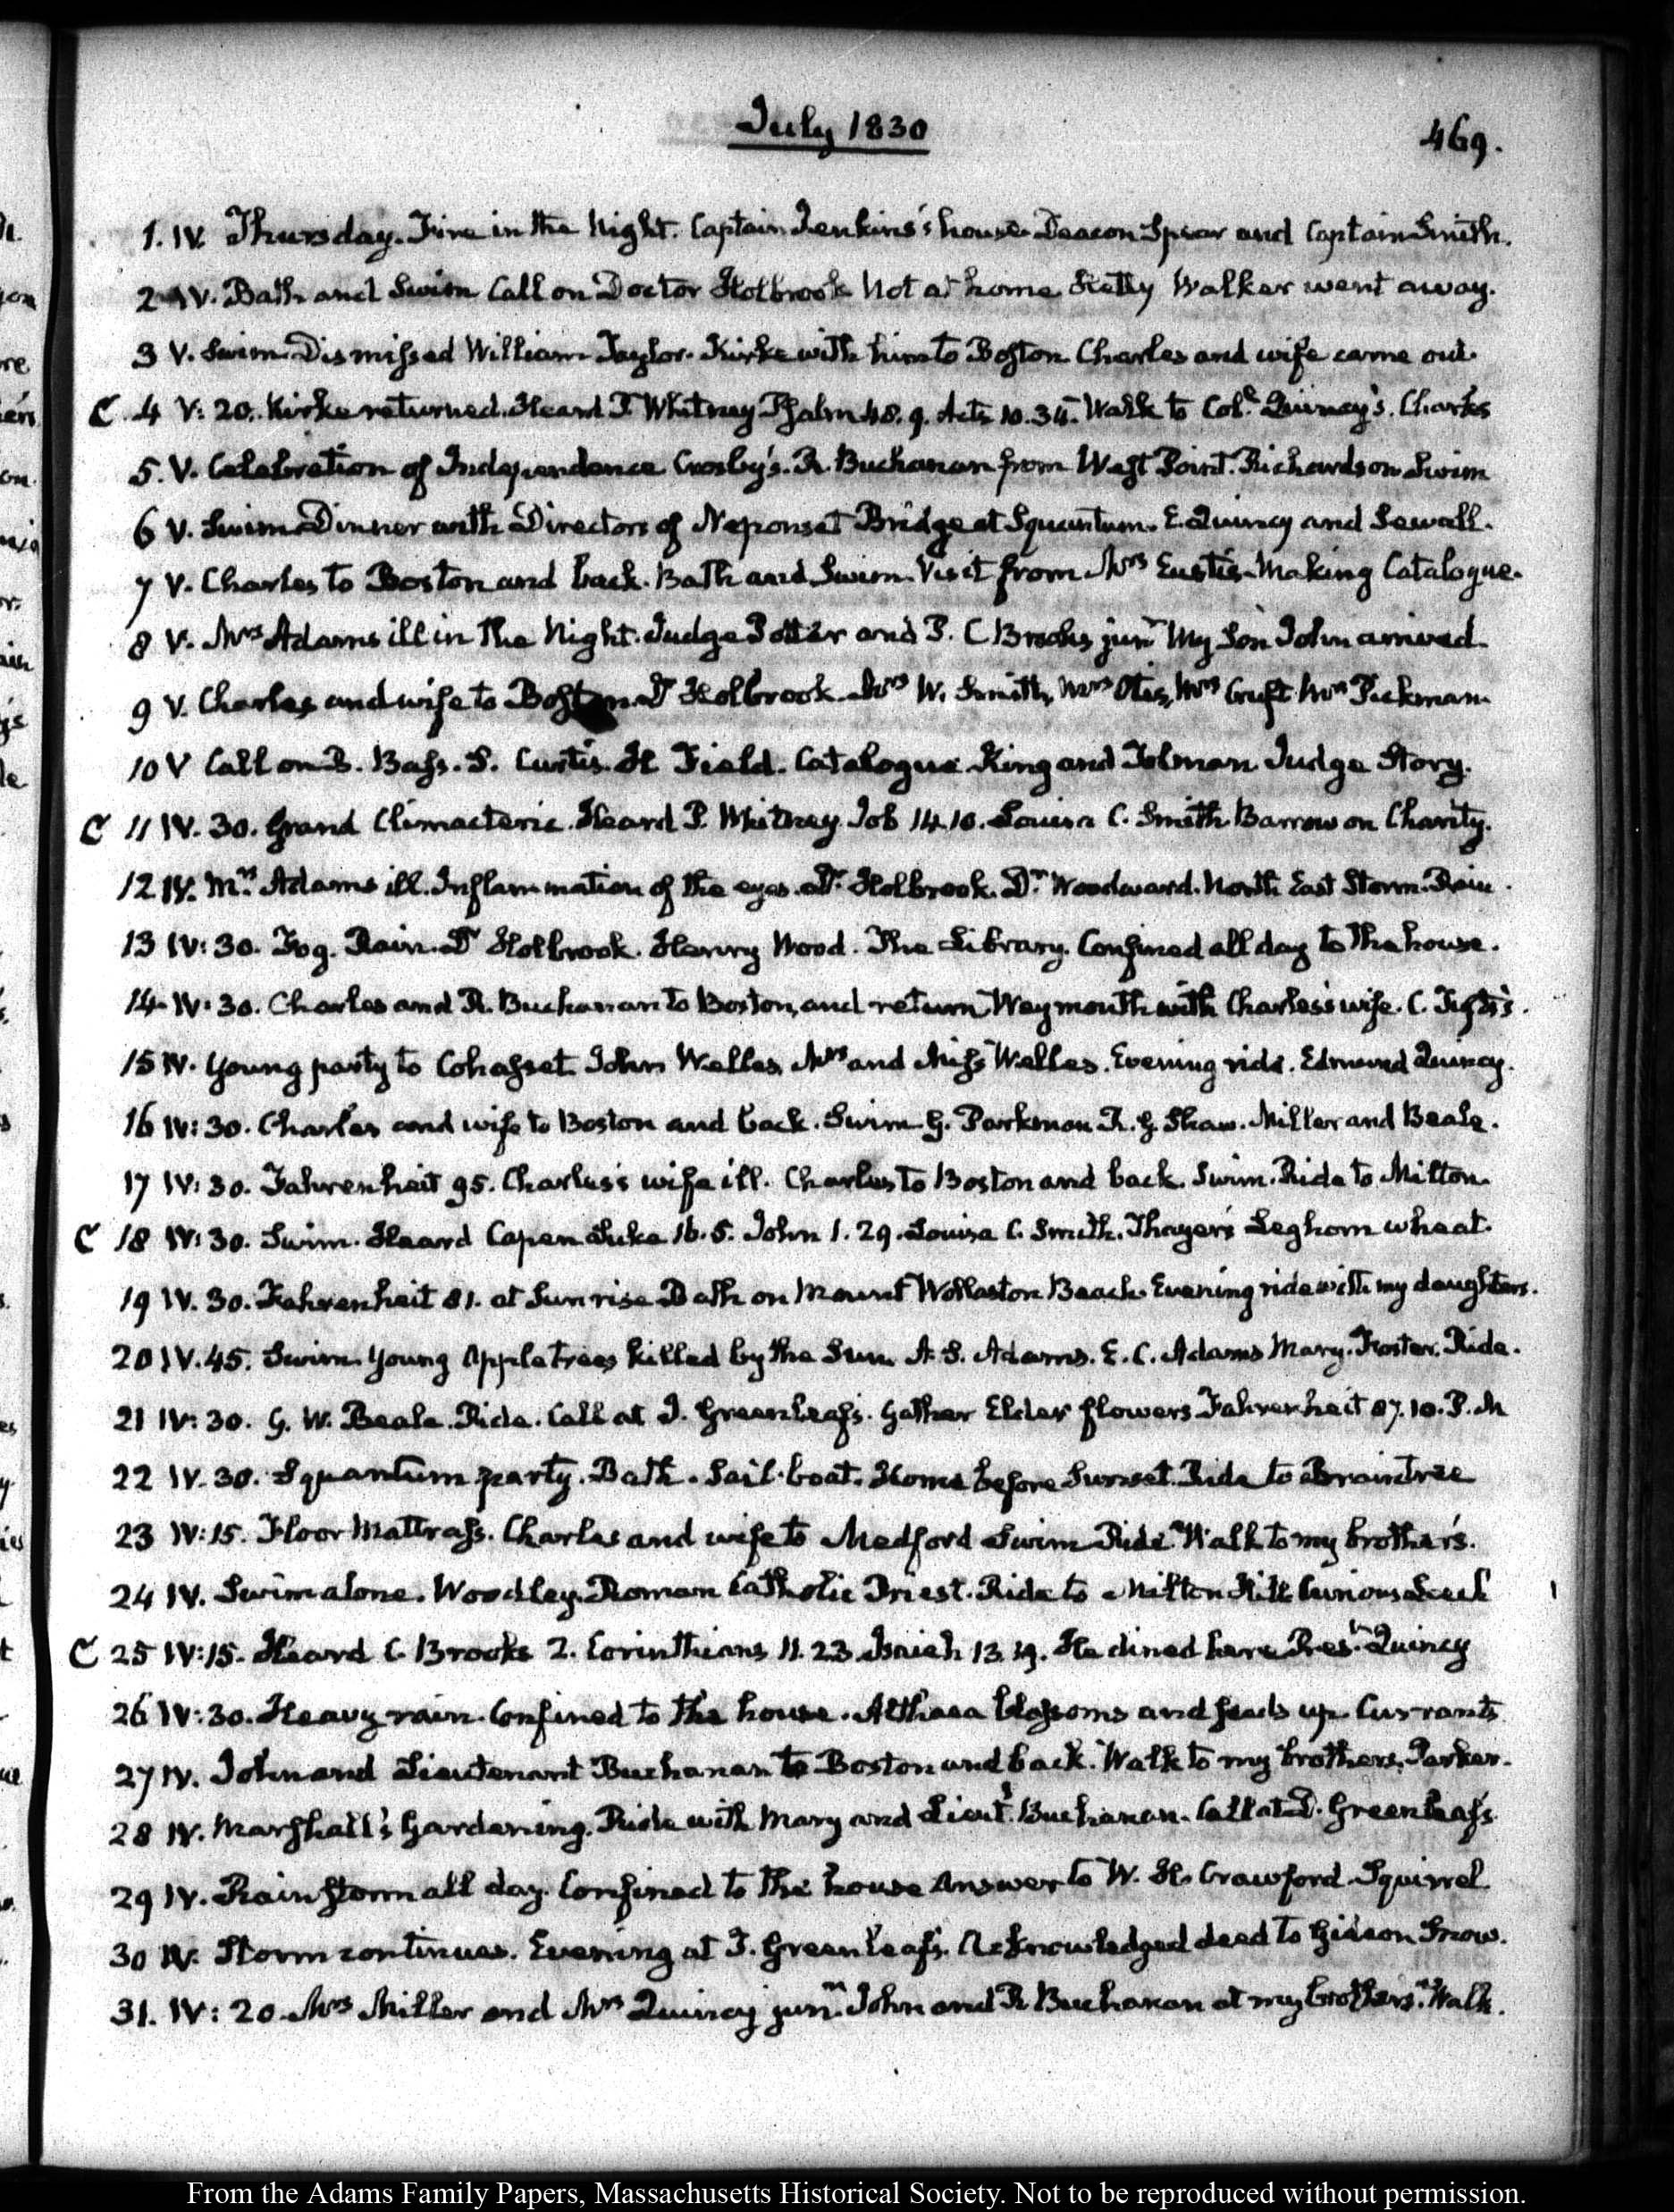 July 1830
469.
1. IV. Thursday. Fire in the Night. Captain Jenkins's house. Deacon Spear and Captain Smith.
2 IV. Bath and Swim Call on Doctor Holbrook Not at home Hetty Walker went away.
3 V. Swim. Dismissed William Taylor. Kirke with him to Boston. Charles and wife came out.
C 4 V: 20. Kirke returned. Heard P. Whitney Psalm 48. 9. Acts 10. 34. Walk to Col. Quincy's. Charles
5. V. Celebration of Independence Crosby's. R. Buchanan from West Point. Richardson Swim
6 V. Swim Dinner with Directors of Neponset Bridge at Squantum. E. Quincy and Sewall.
7 V. Charles to Boston and back. Bath and Swim. Visit from Mrs Eustis. Making Catalogue.
8 V. Mrs Adams ill in the Night. Judge Potter and P. C Brooks junr My Son John arrived
9 V. Charles and wife to Boston. Dr Holbrook. Mrs W. Smith, Mrs Otis, Mrs Cruft Mrs Pickman
10 V Call on B. Bass. S. Curtis. H Field. Catalogue. King and Tolman Judge Story.
C 11 IV. 30. Grand Climacteric. Heard P. Whitney Job 14. 10. Louisa C. Smith. Barrow on Charity.
12 IV. Mrs Adams ill. Inflammation of the eyes. Dr Holbrook. Dr Woodward. North East Storm. Rain.
13 IV: 30. Fog. Rain. Dr Holbrook. Henry Wood. The Library. Confined all day to the house.
14 IV: 30. Charles and R. Buchanan to Boston, and return Weymouth with Charles's wife. C. Tufts's.
15 IV. Young party to Cohasset. John Welles, Mrs and Miss Welles. Evening ride. Edmund Quincy.
16 IV: 30. Charles and wife to Boston and back. Swim. G. Parkman R. G. Shaw. Miller and Beale.
17 IV: 30. Fahrenheit 95. Charles's wife ill. Charles to Boston and back. Swim. Ride to Milton.
C 18 IV: 30. Swim. Heard Capen Luke 16. 5. John 1. 29. Louisa C. Smith. Thayer's Leghorn wheat.
19 IV. 30. Fahrenheit 81. at Sunrise Bath on Mount Wollaston Beach. Evening ride with my daughters.
20 IV. 45. Swim. Young Apple trees killed by the Sun. A. S. Adams. E. C. Adams Mary. Foster. Ride.
21 IV: 30. G. W. Beale. Ride. Call at T. Greenleaf's. Gather Elder flowers Fahrenheit 87. 10. P. M
22 IV. 30. Squantum party. Bath. Sail-boat. Home before Sunset. Ride to Braintree
23 IV: 15. Floor Mattrass. Charles and wife to Medford Swim Ride. Walk to my brother's.
24 IV. Swim alone. Woodley, Roman Catholic Priest. Ride to Milton Hill Curious
C 25 IV: 15. Heard C. Brooks 2. Corinthians 11. 23. Isaiah 13. 19. He dined here Prest Quincy
26 IV: 30. Heavy rain. Confined to the house. Althaea blossoms and seeds up. Currants
27 IV. John and Lieutenant Buchanan to Boston and back. Walk to my brothers. Parker.
28 IV. Marshall's Gardening. Ride with Mary and Lieut. Buchanan. Call at D. Greenleaf's
29 IV. Rain storm all day. Confined to the house Answer to W. H. Crawford. Squirrel
30 IV. Storm continues. Evening at T. Greenleaf's. Acknowledged deed to Gideon Snow.
31. IV: 20. Mrs Miller and Mrs Quincy junr John and R Buchanan at my brother's. Walk.
From the Adams Family Papers, Massachusetts Historical Society. Not to be reproduced without permission.